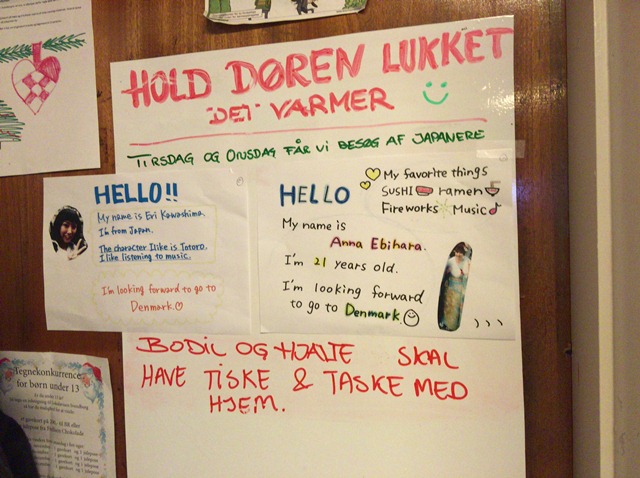 HOLD DØREN LUKKET
DET VARMER
TIRSDAG OG ONSDAG FÅR VI BESØG AF JAPANERE
HELLO!!
My name is Eri Kawashima.
I'm from Japan.
The character I like is Totoro.
I like listening to music.
I'm looking forward to go to
Denmark.
My favorite things
SUSHI ramen
Fireworks Music
HELLO
My name is
Anna Ebihara.
I'm 21 years old.
I'm looking forward
to go to Denmark.
BODIL OG HJALTE SKAL
HAVE TISKE & TASKE MED
HJEM.
Tegnekonkurrence
for børn under 13